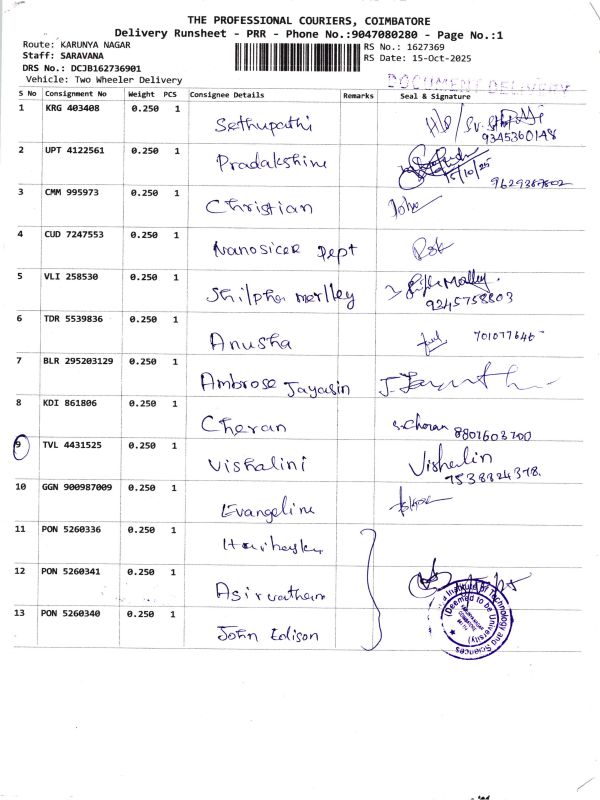 THE PROFESSIONAL COURIERS, COIMBATORE
Delivery Runsheet - PRR - Phone No.:9047080280 - Page No.:1
Route: KARUNYA NAGAR
Staff: SARAVANA
DRS No.: DCJB162736901
Vehicle: Two Wheeler Delivery
RS No.: 1627369
RS Date: 15-Oct-2025
DOCUMENT DELIVERY
S No Consignment No Weight PCS Consignee Details Remarks Seal & Signature
1 KRG 403408 0.250 1 Sethupathi
9345360148
2 UPT 4122561 0.250 1 Pradakshine
15/10/25
9629387802
3 CMM 995973 0.250 1 Christian John
4 CUD 7247553 0.250 1 Nanosicer Dept
5 VLI 258530 0.250 1 Shilpha merlley
9245758803
6 TDR 5539836 0.250 1 Anusha 701077646
7 BLR 295203129 0.250 1 Ambrose Jayasin
8 KDI 861806 0.250 1 Cheran S.Cheran 8807603700
9 TVL 4431525 0.250 1 Vishalini Vishalin
7538824378.
10 GGN 900987009 0.250 1 Evangeline
11 PON 5260336 0.250 1
12 PON 5260341 0.250 1 Asirvatham
13 PON 5260340 0.250 1 John Edison
Institute of Technology and Sciences
(Deemed to be University)